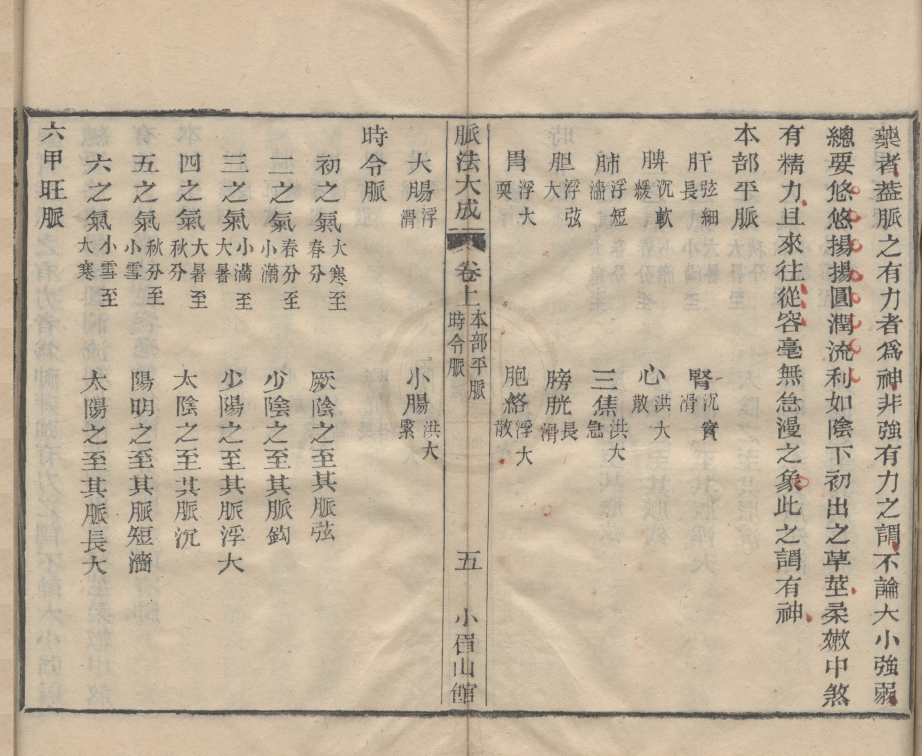 藥者葢脈之有力者爲神非強有力之謂不論大小強弱
總要悠悠揚揚圓潤流利如陰下初出之草莖柔嫩中煞
有精力且來往從容毫無怠漫之象此之謂有神
本部平脈
肝弦細長　腎沉實滑
脾沉軟緩　心洪大散
肺浮短濇　三焦洪大急
胆浮弦大　膀胱長滑
胃浮大耎　胞絡浮大散
脈法大成　卷上　本部平脈　時令脈　五　小眉山館
大腸浮滑　小腸洪大緊
時令脈
初之氣大寒至春分　厥陰之至其脈弦
二之氣春分至小滿　少陰之至其脈鈎
三之氣小滿至大暑　少陽之至其脈浮大
四之氣大暑至秋分　太陰之至其脈沉
五之氣秋分至小雪　陽明之至其脈短濇
六之氣小雪至大寒　太陽之至其脈長大
六甲旺脈